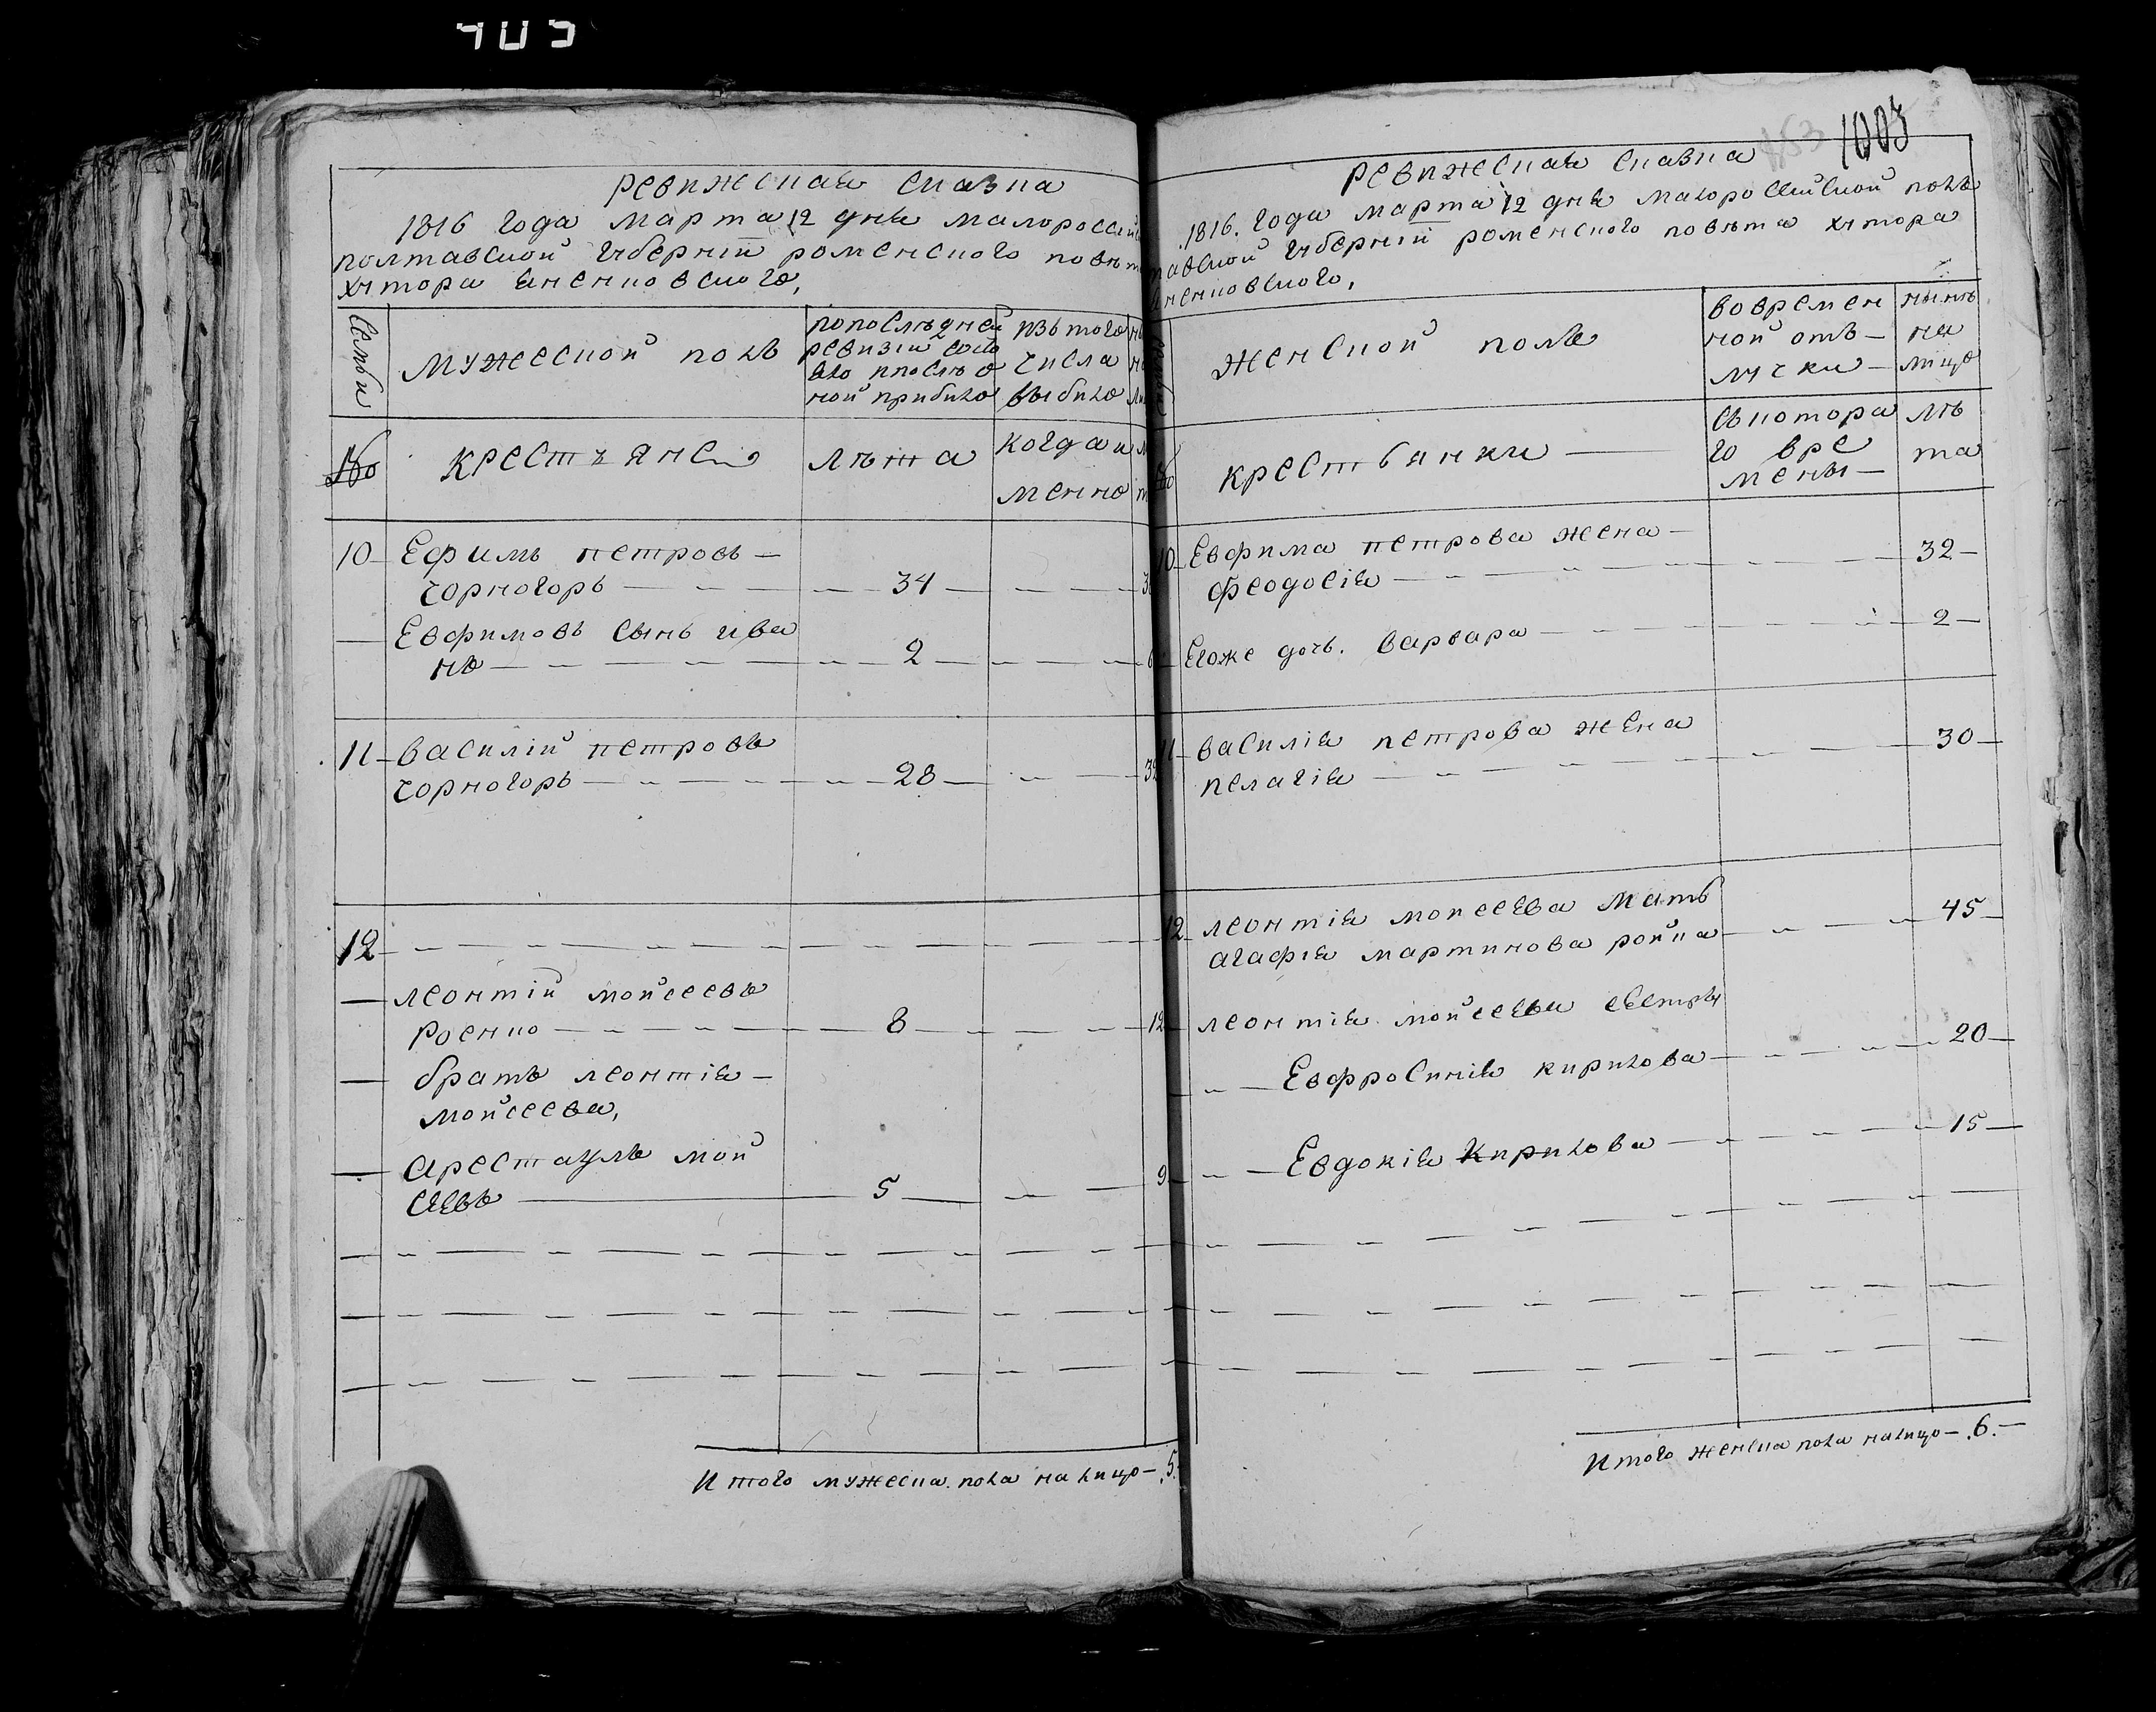 405
ревижская сказка
1816 года марта 12 дня малороссий
полтавской губернїи роменского повѣт
хутора Яненковского,
Семьи
Мужеской полъ
попослѣдней
ревизїи состо
яло ипослѣ о
ной прибыло
изъ того
числа
выбыло
№
крестъяне
лѣта
когда и
менно
10 Ефимъ петровъ
чорногоръ 34
Евфимовъ сынъ ива
нъ 2
11 василїй петровъ
чорногоръ 28
12
леонтїй мойсеевъ
роенко 8 12
братъ леонтїя
мойсеева,
Арестархъ мой
сеевъ 5 9
Итого мужеска пола налицо 5.
153 1003
ревижская сказка
1816. года марта 12 дня малороссийской полъ
тавской губернїи роменского повѣта хутора
Яненковского,
женской полъ
вовремен
ной отъ
лучки
нынѣ
на
лицо
крестьянки
съкотора
го вре
мены
лѣ
та
10 Евфима петрова жена
феодосїя 32
Егоже дочь. варвара 2
11 василїя петрова жена
пелагїя 30
12 леонтїя моисеева мать
агафїя мартинова ройка 45
леонтїя мойсеева сестры
Евфросинїя кирилова 20
Евдокїя Кирилова 15
Итого женска пола налицо 6.